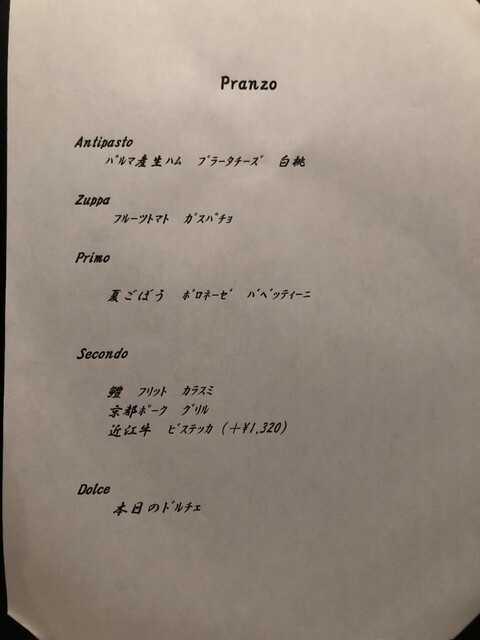 Pranzo
Antipasto
ﾊﾟﾙﾏ産生ﾊﾑ ﾌﾞﾗｰﾀﾁｰｽﾞ 白桃
Zuppa
ﾌﾙｰﾂﾄﾏﾄ ｶﾞｽﾊﾟﾁｮ
Primo
夏ごぼう ﾎﾞﾛﾈｰｾﾞ ﾊﾞﾍﾞｯﾃｨｰﾆ
Secondo
鱧 ﾌﾘｯﾄ ｶﾗｽﾐ
京都ﾎﾟｰｸ ｸﾞﾘﾙ
近江牛 ﾋﾞｽﾃｯｶ (+¥1,320)
Dolce
本日のﾄﾞﾙﾁｪ